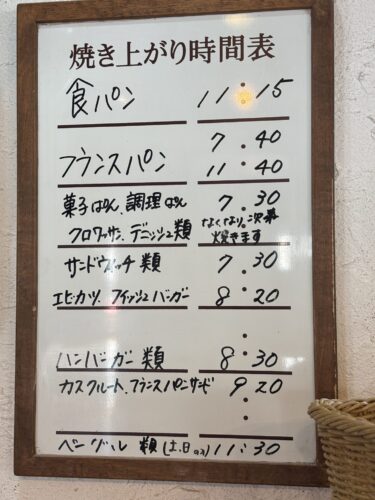 焼き上がり時間表
食パン 11:15
7:40
フランスパン 11:40
菓子ぱん、調理ぱん 7.30
クロワッサン、デニッシュ類 なくなり次第焼きます
サンドウィッチ類 7.30
エビカツ、フィッシュバーガー 8.20
ハンバーガー類 8.30
カスクルート、フランスパンサンド 9 20
ベーグル類(土、日のみ) 11:30